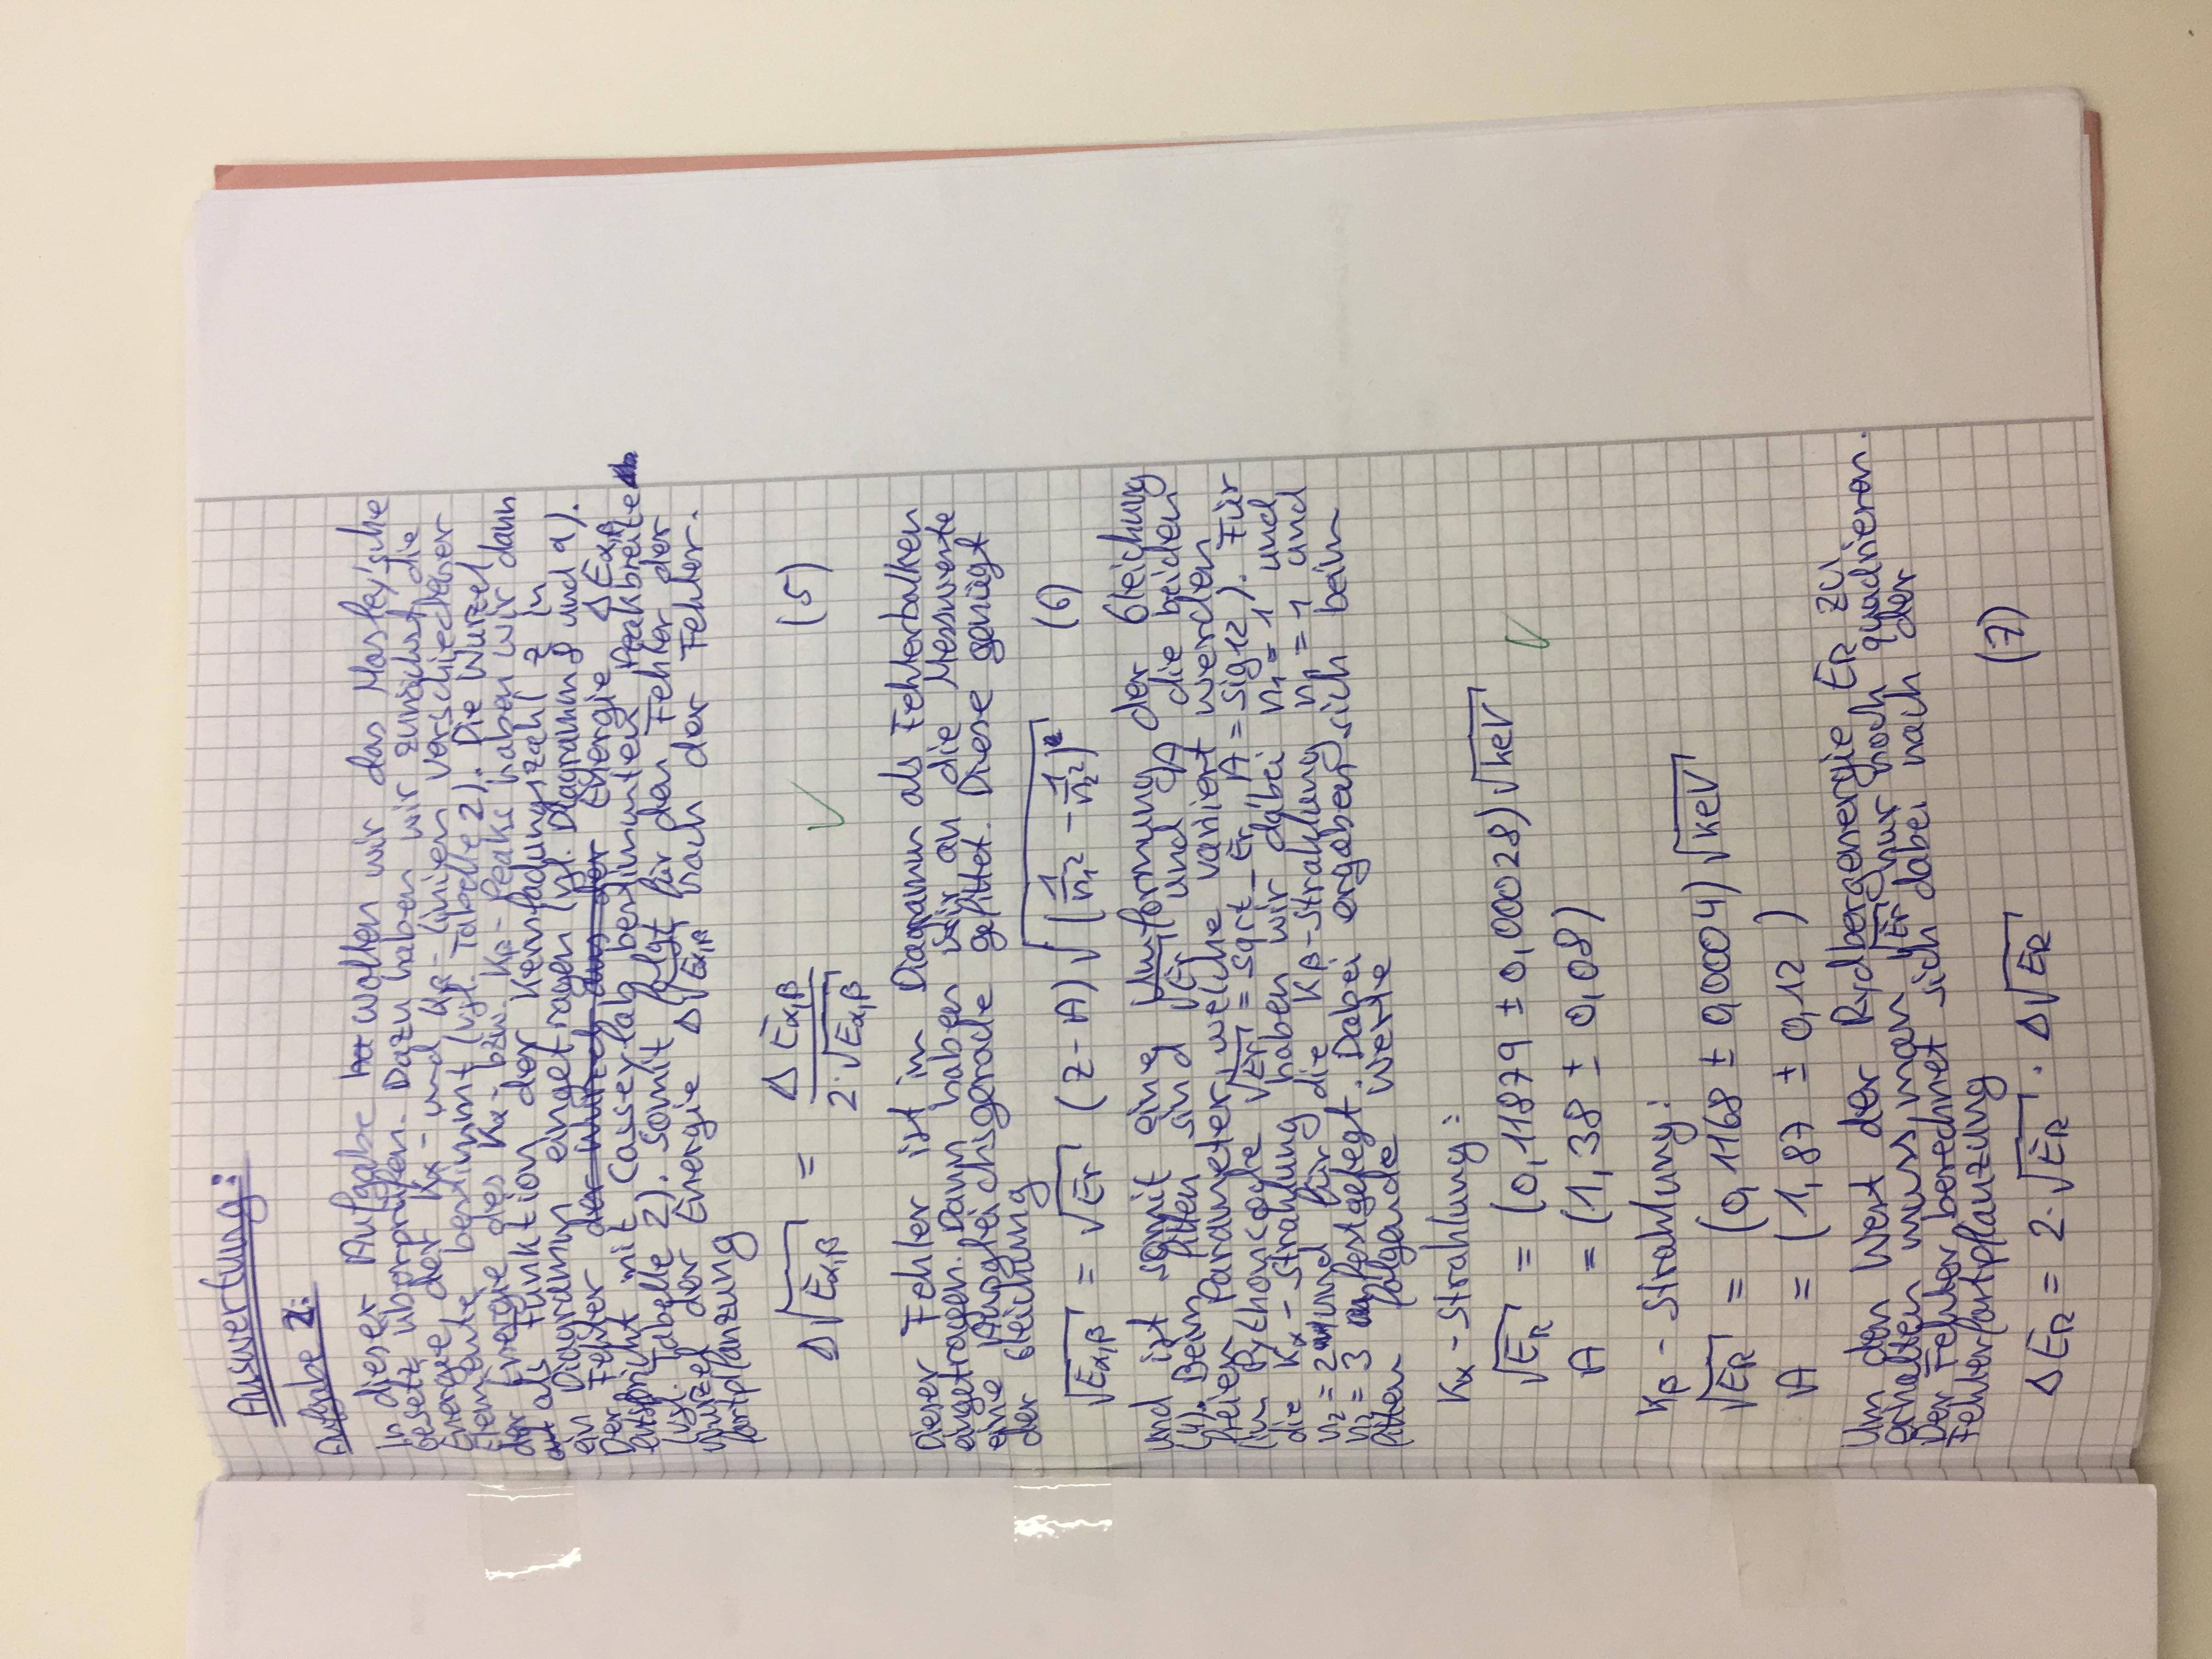 Auswertung:
Aufgabe 2:
In dieser Aufgabe wollen wir das Mosley'sche
Gesetz überprüfen. Dazu haben wir zunächst die
Energie der Kα- und Kβ-Linien verschiedener
Elemente bestimmt (vgl. Tabelle 2). Die Wurzel
der Energie des Kα- bzw. Kβ-Peaks haben wir dann
als Funktion der Kernladungszahl z in
ein Diagramm eingetragen (vgl. Diagramm 8 und 9).
Der Fehler der Wurzel aus der Energie ΔEα,β
entspricht mit Casseylab bestimmten Peakbreite
(vgl. Tabelle 2). Somit folgt für den Fehler der
Wurzel der Energie Δ√Eα,β nach der Fehler-
fortpflanzung
Δ√Eα,β = ΔEα,β / (2·√Eα,β) ✓ (5)
Dieser Fehler ist im Diagramm als Fehlerbalken
eingetragen. Dann haben wir an die Messwerte
eine Ausgleichsgerade gefittet. Diese genügt
der Gleichung
√Eα,β = √Er (z-A) √(1/n₁² - 1/n₂²) (6)
und ist somit eine Umformung der Gleichung
(4). Beim fitten sind √Er und A die beiden
freien Parameter, welche variiert werden
(im Pythoncode √Er = sqrt_Er, A = sig12). Für
die Kα-Strahlung haben wir dabei n₁ = 1 und
n₂ = 2 und für die Kβ-Strahlung n₁ = 1 und
n₂ = 3 festgelegt. Dabei ergaben sich beim
fitten folgende Werte
Kα-Strahlung:
√ER = (0,11879 ± 0,00028) √keV ✓
A = (1,38 ± 0,08)
Kβ-Strahlung:
√ER = (0,1168 ± 0,0004) √keV
A = (1,87 ± 0,12)
Um den Wert der Rydbergenergie ER zu
erhalten muss man √Er nur noch quadrieren.
Der Fehler berechnet sich dabei nach der
Fehlerfortpflanzung
ΔER = 2·√ER · Δ√ER (7)